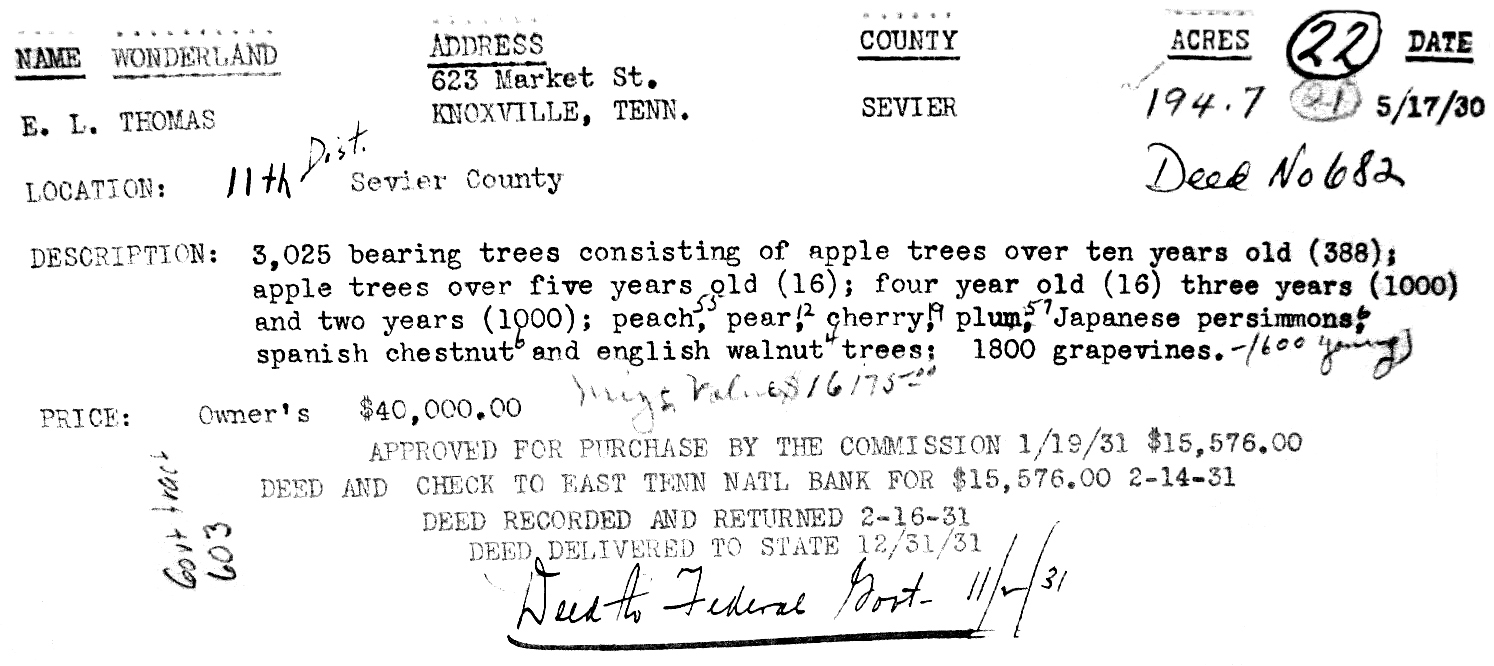 NAME WONDERLAND ADDRESS COUNTY ACRES 22 DATE
623 Market St.
E. L. THOMAS KNOXVILLE, TENN. SEVIER 194.7 21 5/17/30
LOCATION: 11th Dist. Sevier County Deed No 682
DESCRIPTION: 3,025 bearing trees consisting of apple trees over ten years old (388);
apple trees over five years old (16); four year old (16) three years (1000)
and two years (1000); peach,55 pear,12 cherry,19 plum,57 Japanese persimmons,6
spanish chestnut6 and english walnut4 trees; 1800 grapevines. -1600 young)
PRICE: Owner's $40,000.00 Value $16175.00
APPROVED FOR PURCHASE BY THE COMMISSION 1/19/31 $15,576.00
DEED AND CHECK TO EAST TENN NATL BANK FOR $15,576.00 2-14-31
DEED RECORDED AND RETURNED 2-16-31
DEED DELIVERED TO STATE 12/31/31
Deed to Federal Govt- 11/2/31
Govt tract
603